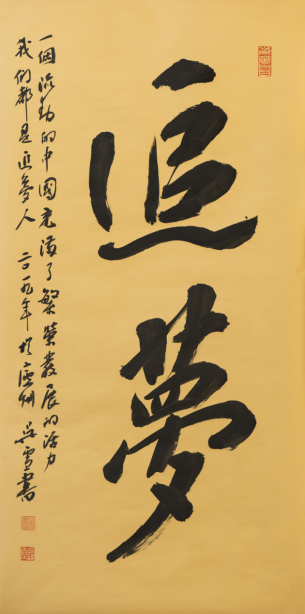 追夢
一個流動的中國充滿了繁榮發展的活力
我们都是追夢人 二〇一九年於廬州 吳雪書